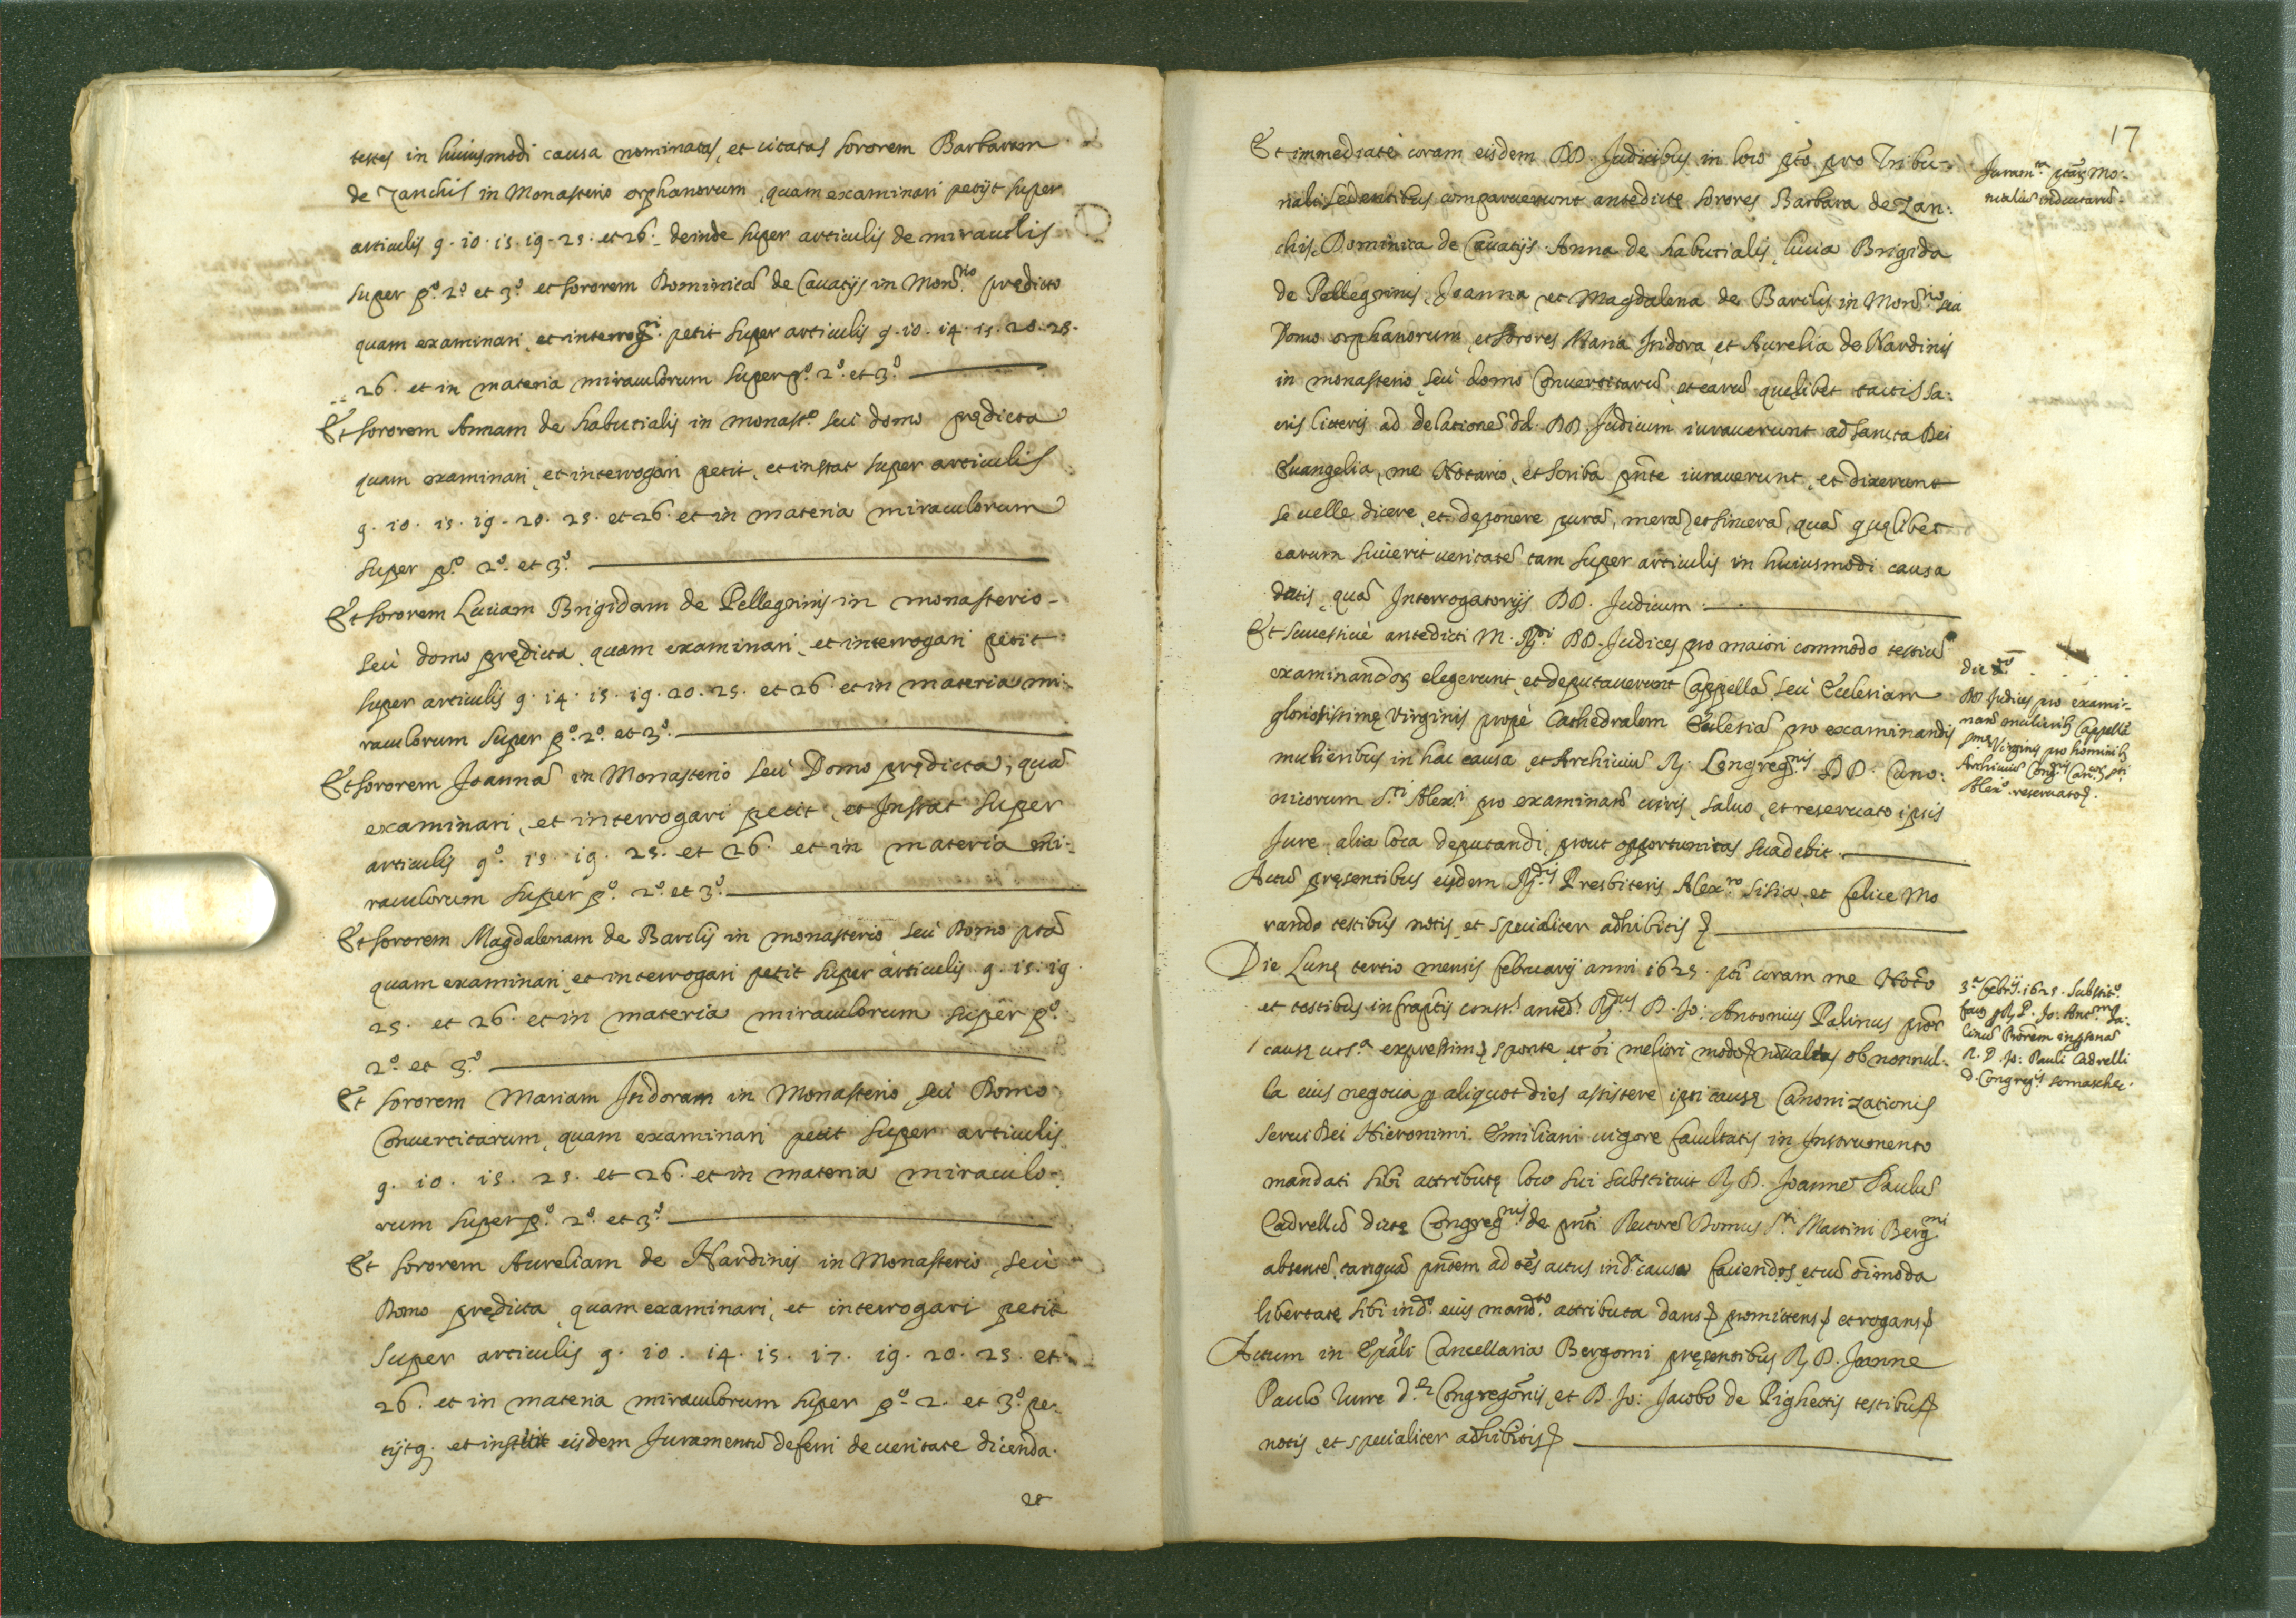 testes in huiusmodi causa nominatas, et citatas sororem Barbaram
de Zanchis in Monasterio orphanorum, quam examinari petijt super
articulis 9. 10. 15. 19. 25. et 26. deinde super articulis de miraculis
super p.º 2.º et 3.º et sororem Dominicā de Cauatijs in Mon.rio prędicto
quam examinari, et interrog.ri petit super articulis 9. 10. 14. 15. 20. 25.
26. et in materia miraculorum super p.º 2.º et 3.º
Et sororem Annam de habutialis in monast.º seù domo prędicta
quam examinari, et interrogari petit, et instat super articulis
9. 10. 15. 19. 20. 25. et 26. et in materia miraculorum
super p.º 2.º et 3.º
Et sororem Luciam Brigidam de Pellegrinis in monasterio
seù domo prędicta, quam examinari, et interrogari petit
super articulis 9. 14. 15. 19. 20. 25. et 26. et in materia mi-
raculorum super p.º 2.º et 3.º
Et sororem Joannā in Monasterio seù Domo prędicta, quā
examinari, et interrogari petit, et Instat super
articulis 9.º 15. 19. 25. et 26. et in materia mi-
raculorum super p.º 2.º et 3.º
Et sororem Magdalenam de Barilis in monasterio seù Domo pta
quam examinari, et interrogari petit super articulis 9. 15. 19
25. et 26. et in materia miraculorum super p.º
2.º et 3.º
Et sororem Mariam Isidoram in Monasterio seù Domo
Conuertitarum, quam examinari petit super articulis
9. 10. 15. 25. et 26. et in materia miraculo-
rum super p.º 2.º et 3.º
Et sororem Aureliam de Nardinis in Monasterio, seù
Domo prędicta, quam examinari, et interrogari petit
super articulis 9. 10. 14. 15. 17. 19. 20. 25. et
26. et in materia miraculorum super p.º 2. et 3.º pe-
tijtq. et institit eisdem Juramentū deferri de ueritate dicenda.
et
17
Et immediatè coram eisdem DD. Judicibus in loco pto pro Tribu-
nali sedentibus comparuerunt antedictę sorores Barbara de Zan:
chis, Dominica de Cauatijs Anna de habutialis, lucia Brigida
de Pellegrinis, Joanna, et Magdalena de Barilis in Mon.rio seu
Domo orphanorum, et sorores Maria Isidora, et Aurelia de Nardinis
in monasterio, seù domo Conuertitarū, et earū quęlibet tactis sa-
cris litteris ad delationē dd. DD. Judicum iurauerunt ad sancta Dei
Euangelia, me Notario, et scriba pñte iurauerunt, et dixerunt
se uelle dicere, et deponere purā, merā, et sincerā, quā quęlibet
earum sciuerit ueritatē tam super articulis in huiusmodi causa
datis, quā Interrogatorijs DD. Judicum
Et sucessiuè antedicti M. R.di DD. Judices pro maiori commodo testiū
examinandoȝ elegerunt, et deputauerunt Cappellā seù Ecclesiam
gloriosissimę Virginis propè Cathedralem Ecclesiā pro examinandis
mulieribus in hac causa, et Archiuiū R. Congreg.nis DD. Cano:
nicorum S.ti Alex.i pro examinand. uiris, saluo, et reseruato ipsis
Jure, alia loca deputandi, prout opportunitas suadebit.
Actū pręsentibus eisdem R.dis Presbiteris Alex.ro sisia, et felice Mo
rando testibus notis, et specialiter adhibitis
Die Lunę tertio mensis februarij anni 1625. pti coram me Notº
et testibus infraptis const.s anted.s R.dus D. Jo: Antonius Palinus proc.r
causę ut s.ª expressim, sponte, et oi meliori modo nō ualens ob nonnul-
la eius negocia p aliquot dies assistere ipsi causę Canonizationis
serui Dei Hieronimi Emiliani uigore facultatis in Instrumento
mandati sibi attributę loco sui substituit R. D. Joannē Paulū
Cadrellū dictę Congreg.nis de pnti Rectorē Domus S.ti Martini Berg.mi
absentē, tanquā pñtem ad oēs actus in d.ª causa faciendos, et cū oimoda
libertate sibi in d.º eius mand.to attributa dans promittens et rogans
Actum in Epali Cancellaria Bergomi pręsentibus R. D. Joanne
Paulo Jurre d.ę Congregonis, et D. Jo: Jacobo de Pighettis testibus
notis, et specialiter adhibitis
Juram.ta ptaȝ Mo-
nialiū inductarū.
die d.º
DD. Judices pro exami-
nand. mulierib. Cappellā
Virginis pro hominib.
Archiuiū Cong.nis Can.coȝ sti
Alex.i reseruato
3.ª febrij. 1625. Substit.º
facta p R. P. Jo: Ant.m Pa-
linū Procrem in psonā
R. D. Jo: Pauli Cadrelli
d. Congreg.is somaschę.